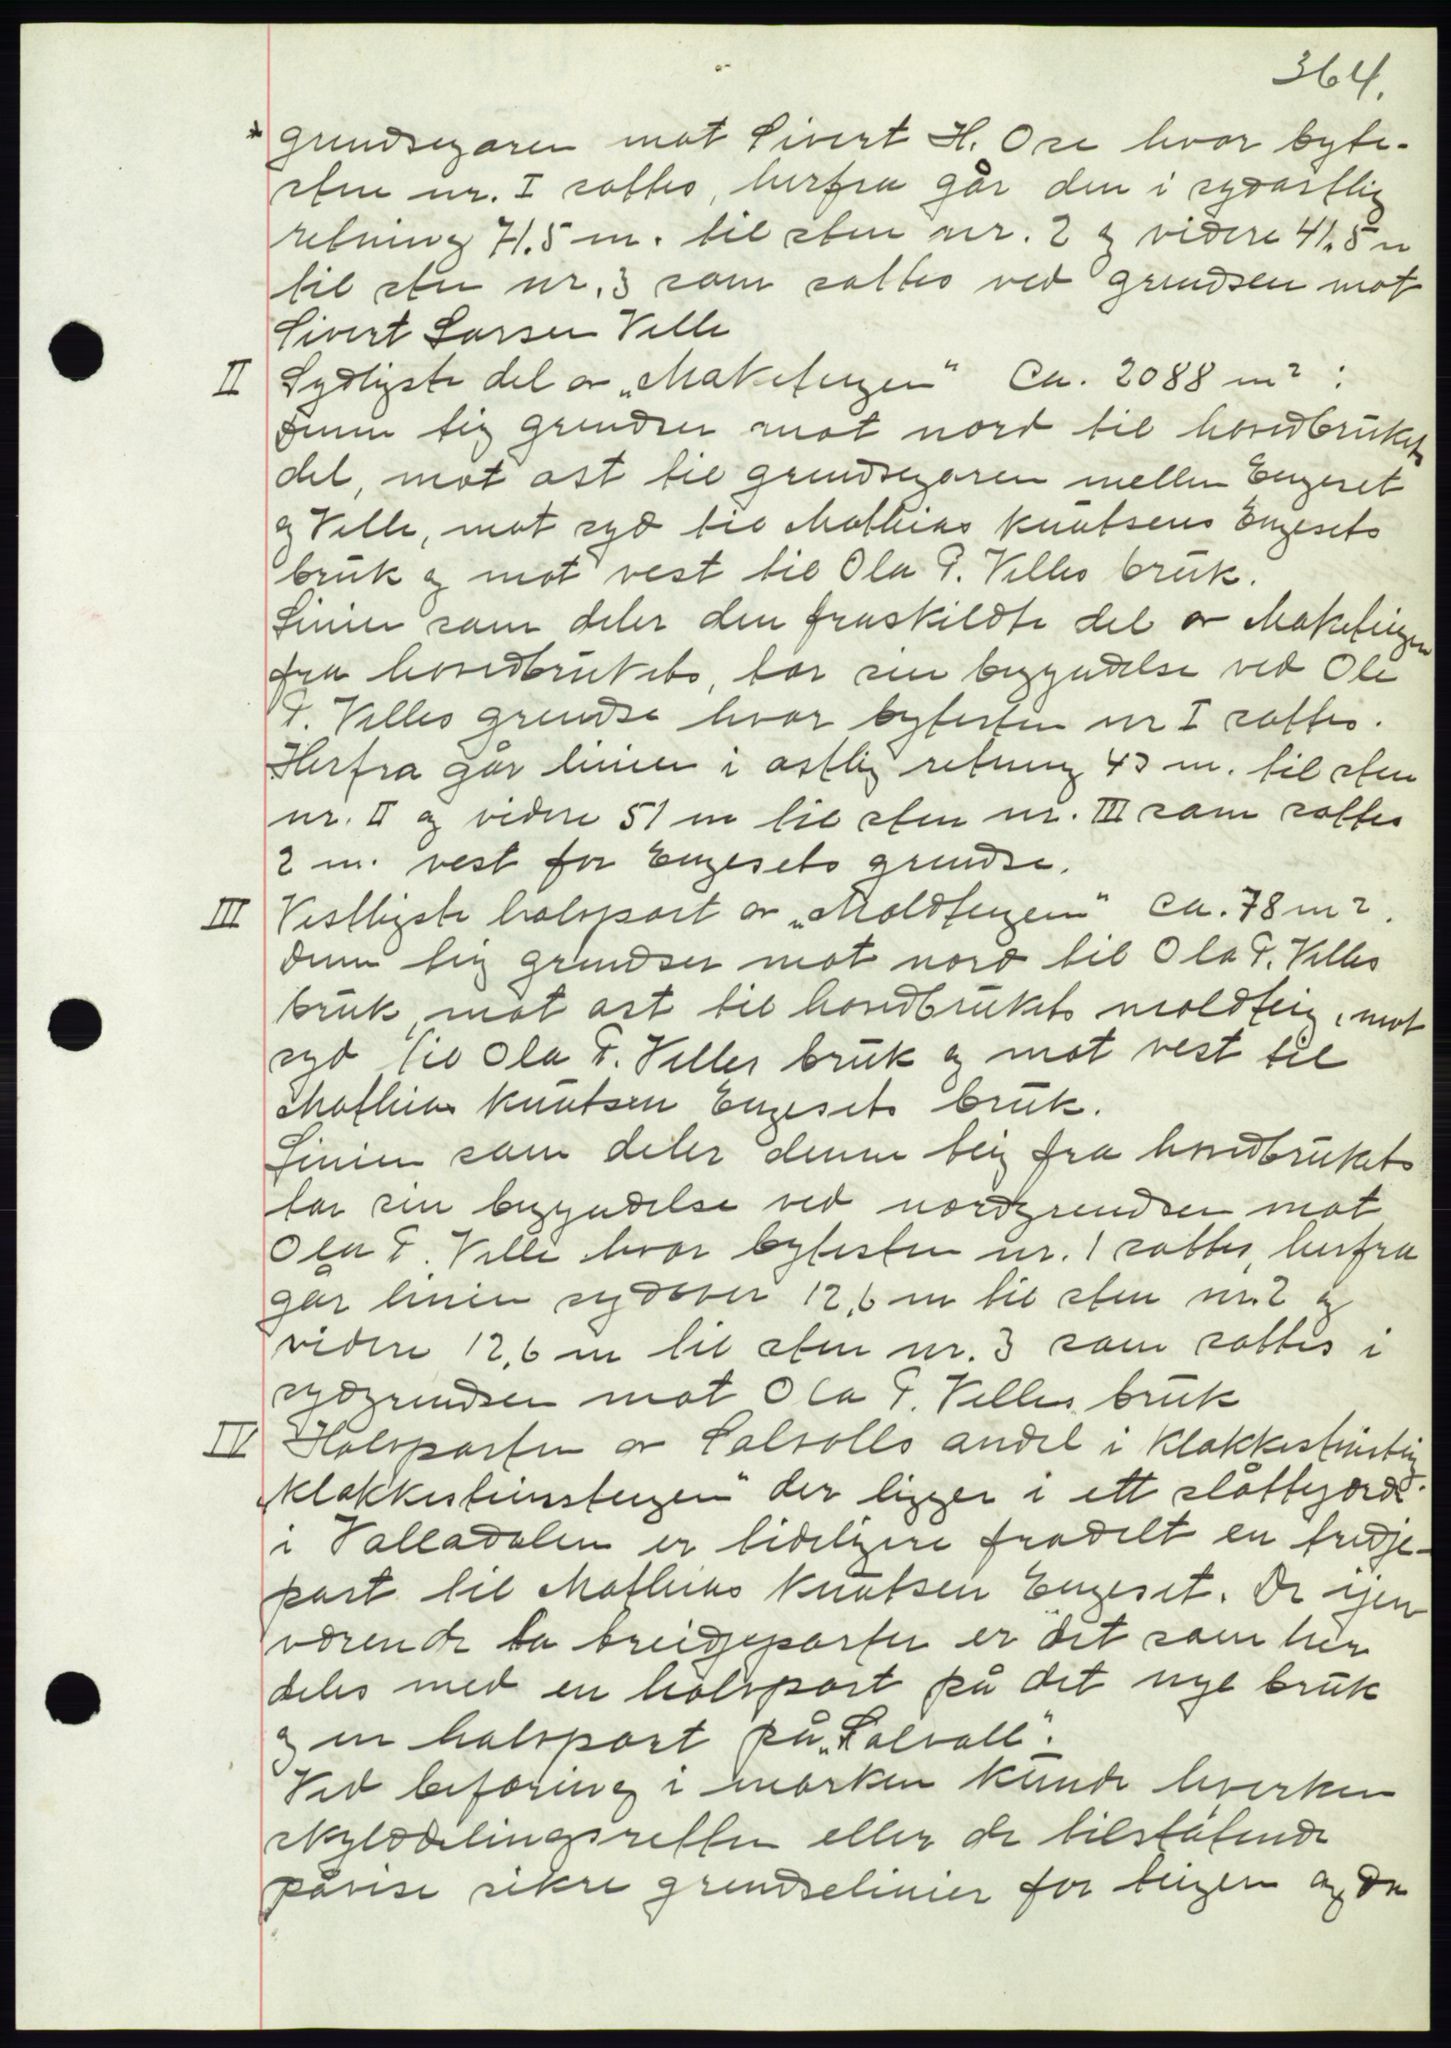 364.
* grendsegaren mot Sivert H. Ose hvor byte-
sten nr. I sattes, herfra går den i sydøstlig
retning 71.5 m. til sten nr. 2 og videre 41.5 m
til sten nr. 3 som sattes ved grendsen mot
Sivert Larsen Velle
II Sydligste del av „Maketeigen" Ca. 2088 m² :
Denne teig grendser mot nord til hovedbrukets
del, mot øst til grendsegaren mellem Engeset
og Velle, mot syd til Mathias Knutsens Engesets
bruk og mot vest til Ola P. Velles bruk.
Linien som deler den fraskildte del av Maketeigen
fra hovedbrukets, tar sin begyndelse ved Ole
P. Velles grendse hvor bytesten nr I sattes.
Herfra går linien i østlig retning 43 m. til sten
nr. II og videre 51 m til sten nr. III som sattes
2 m. vest for Engesets grendse.
III Vestligste halvpart av „Moldteigen" ca. 78 m².
Denne teig grendser mot nord til Ola P. Velles
bruk, mot øst til hovedbrukets moldteig, mot
syd til Ola P. Velles bruk og mot vest til
Mathias Knutsen Engesets bruk.
Linien som deler denne teig fra hovedbrukets
tar sin begyndelse ved nordgrendsen mot
Ola P. Velle hvor bytesten nr. 1 sattes, herfra
går linien sydover 12,6 m til sten nr. 2 og
videre 12,6 m til sten nr. 3 som sattes i
sydgrendsen mot Ola P. Velles bruk
IV Halvparten av Salvolls andel i Klokkesteinsteig
„Klokkesteinsteigen" der ligger i ett slåttegjærde
i Valladalen er tideligere fradelt en tredje-
part til Mathias Knutsen Engeset. De igjen
værende to treidjeparter er det som her
deles med en halvpart på det nye bruk
og en halvpart på „Salvoll".
Ved befaring i marken kunde hverken
skylddelingsretten eller de tilstøtende
påvise sikre grendselinier for teigen og da